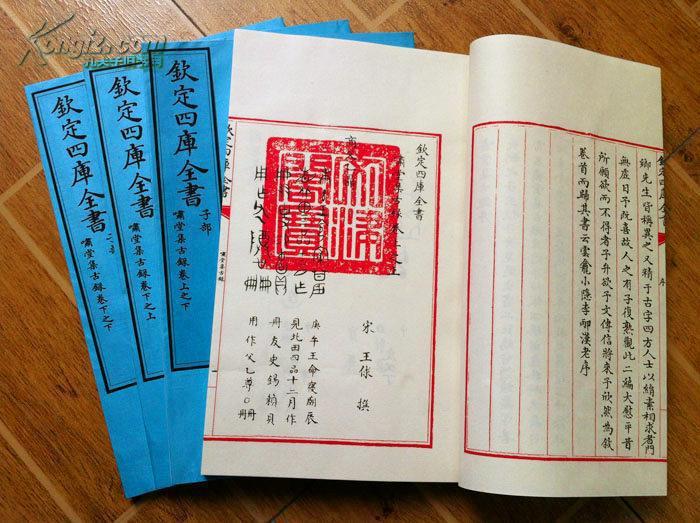 Kongfz.com
孔夫子旧书网
欽定四庫全書
子部
嘯堂集古錄卷上之下
欽定四庫全書
嘯堂集古錄卷下之上
欽定四庫全書
嘯堂集古錄卷下之下
鄉先生皆稱異之又精于古字四方人士以縑素相求者門
無虛日予既喜故人之有子復熟觀此二編大慰平昔
所願欲而不得者子升欲予文傳信將來予欣然為敘
卷首而歸其書云雲龕小隱李邴漢老序
欽定四庫全書
序
欽定四庫全書
嘯堂集古錄卷上之上
宋 王俅 撰
庚午王命寑廟辰
見北田四品十二月作
冊友史錫賴貝
用作父乙尊 冊
欽定四庫全書
嘯堂集古錄